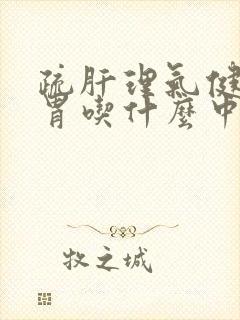 疏肝理氣健
胃喫什麼中
牧之城